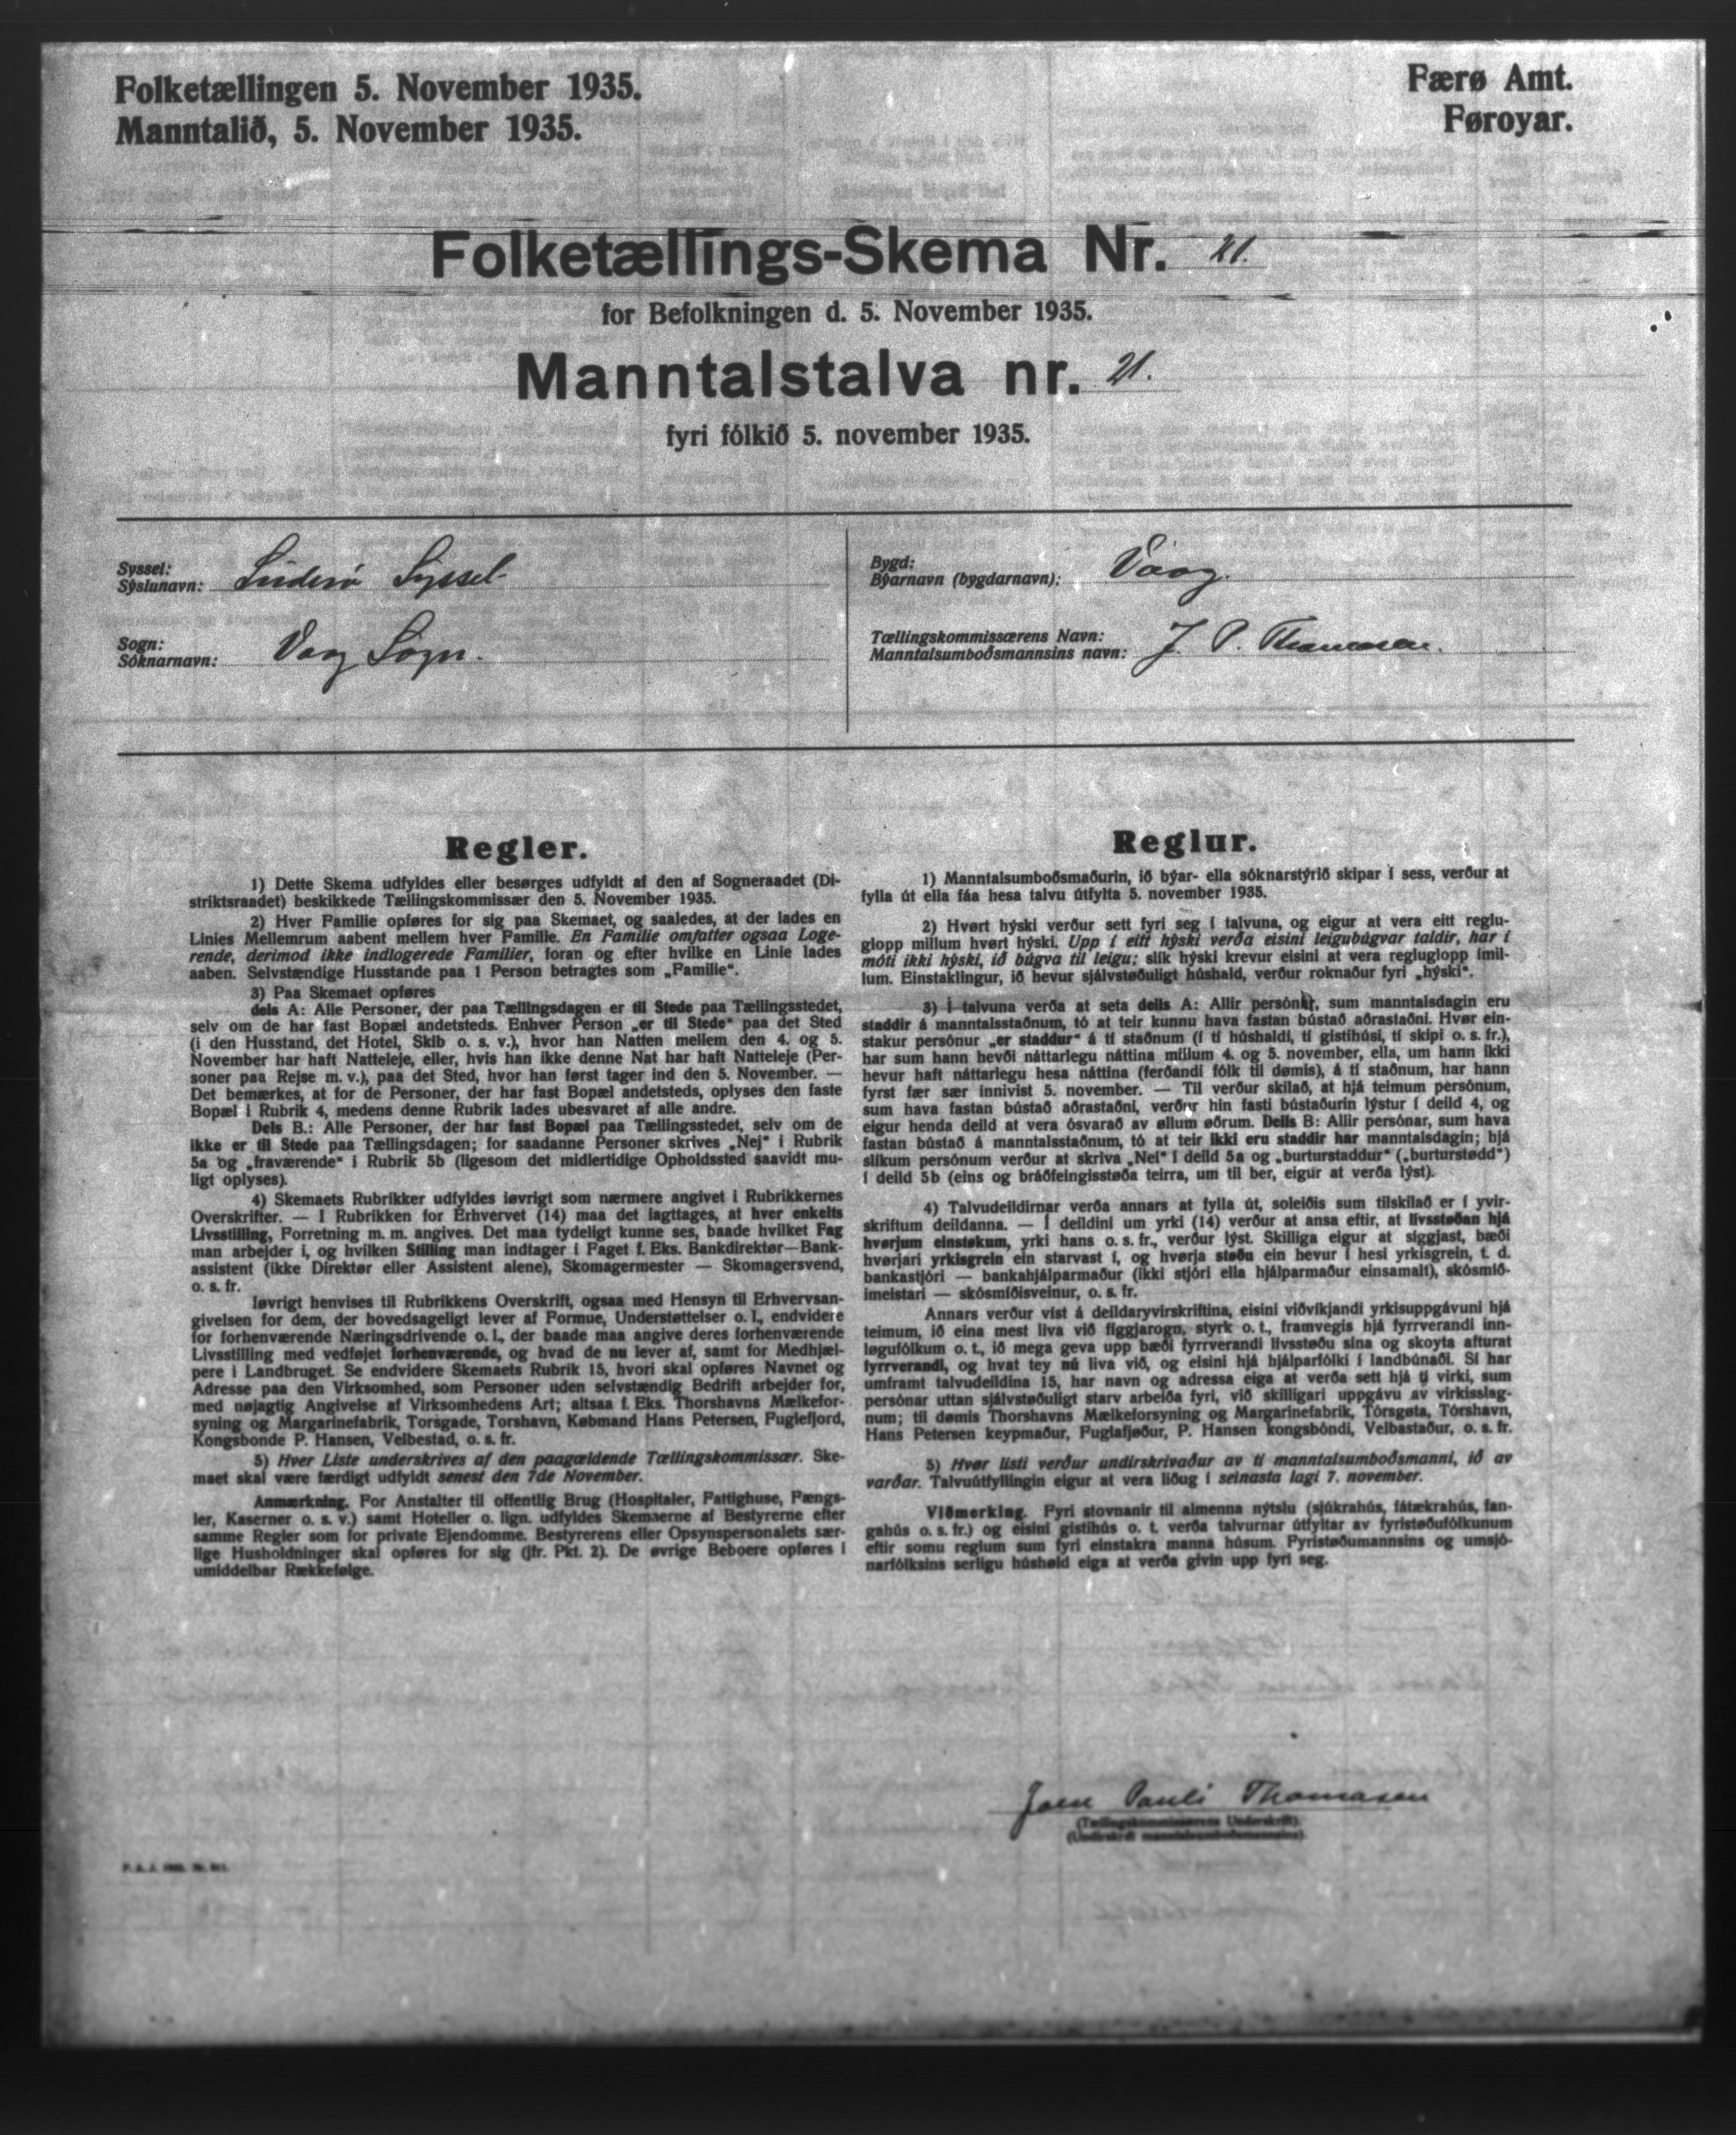 Folketællingen 5. November 1935.
Manntalið, 5. November 1935.
Færø Amt.
Føroyar.
Folketællings-Skema Nr. 21.
for Befolkningen d. 5. November 1935.
Manntalstalva nr. 21.
fyri fólkið 5. november 1935.
Syssel:
Sýslunavn: Suderø Syssel
Sogn:
Sóknarnavn: Vaag Sogn.
Bygd:
Býarnavn (bygdarnavn): Vaag.
Tællingskommissærens Navn:
Manntalsumboðsmannsins navn: J. P. Thomasen.
Regler.
1) Dette Skema udfyldes eller besørges udfyldt af den af Sogneraadet (Di-
striktsraadet) beskikkede Tællingskommissær den 5. November 1935.
2) Hver Familie opføres for sig paa Skemaet, og saaledes, at der lades en
Linies Mellemrum aabent mellem hver Familie. En Familie omfatter ogsaa Loge-
rende, derimod ikke indlogerede Familier, foran og efter hvilke en Linie lades
aaben. Selvstændige Husstande paa 1 Person betragtes som „Familie“.
3) Paa Skemaet opføres
dels A: Alle Personer, der paa Tællingsdagen er til Stede paa Tællingsstedet,
selv om de har fast Bopæl andetsteds. Enhver Person „er til Stede“ paa det Sted
(i den Husstand, det Hotel, Skib o. s. v.), hvor han Natten mellem den 4. og 5.
November har haft Natteleje, eller, hvis han ikke denne Nat har haft Natteleje (Per-
soner paa Rejse m. v.), paa det Sted, hvor han først tager ind den 5. November. —
Det bemærkes, at for de Personer, der har fast Bopæl andetsteds, oplyses den faste
Bopæl i Rubrik 4, medens denne Rubrik lades ubesvaret af alle andre.
Dels B.: Alle Personer, der har fast Bopæl paa Tællingsstedet, selv om de
ikke er til Stede paa Tællingsdagen; for saadanne Personer skrives „Nej“ i Rubrik
5a og „fraværende“ i Rubrik 5b (ligesom det midlertidige Opholdssted saavidt mu-
ligt oplyses).
4) Skemaets Rubrikker udfyldes iøvrigt som nærmere angivet i Rubrikkernes
Overskrifter. — I Rubrikken for Erhvervet (14) maa det iagttages, at hver enkelts
Livsstilling, Forretning m. m. angives. Det maa tydeligt kunne ses, baade hvilket Fag
man arbejder i, og hvilken Stilling man indtager i Faget f. Eks. Bankdirektør—Bank-
assistent (ikke Direktør eller Assistent alene), Skomagermester — Skomagersvend,
o. s. fr.
Iøvrigt henvises til Rubrikkens Overskrift, ogsaa med Hensyn til Erhvervsan-
givelsen for dem, der hovedsageligt lever af Formue, Understøttelser o. l., endvidere
for forhenværende Næringsdrivende o. l., der baade maa angive deres forhenværende
Livsstilling med vedføjet forhenværende, og hvad de nu lever af, samt for Medhjæl-
pere i Landbruget. Se endvidere Skemaets Rubrik 15, hvori skal opføres Navnet og
Adresse paa den Virksomhed, som Personer uden selvstændig Bedrift arbejder for,
med nøjagtig Angivelse af Virksomhedens Art; altsaa f. Eks. Thorshavns Mælkefor-
syning og Margarinefabrik, Torsgade, Torshavn, Købmand Hans Petersen, Fuglefjord,
Kongsbonde P. Hansen, Velbestad, o. s. fr.
5) Hver Liste underskrives af den paagældende Tællingskommissær. Ske-
maet skal være færdigt udfyldt senest den 7de November.
Anmærkning. For Anstalter til offentlig Brug (Hospitaler, Fattighuse, Fængs-
ler, Kaserner o. s. v.) samt Hoteller o. lign. udfyldes Skemaerne af Bestyrerne efter
samme Regler som for private Ejendomme. Bestyrerens eller Opsynspersonalets sær-
lige Husholdninger skal opføres for sig (jfr. Pkt. 2). De øvrige Beboere opføres i
umiddelbar Rækkefølge.
Reglur.
1) Manntalsumboðsmaðurin, ið býar- ella sóknarstýrið skipar í sess, verður at
fylla út ella fáa hesa talvu útfylta 5. november 1935.
2) Hvørt hýski verður sett fyri seg í talvuna, og eigur at vera eitt reglu-
glopp millum hvørt hýski. Upp í eitt hýski verða eisini leigubúgvar taldir, har í
móti ikki hýski, ið búgva til leigu; slík hýski krevur eisini at vera regluglopp ímil-
lum. Einstaklingur, ið hevur sjálvstøðuligt húshald, verður roknaður fyri „hýski“.
3) Í talvuna verða at seta dells A: Allir persónar, sum manntalsdagin eru
staddir á manntalsstaðnum, tó at teir kunnu hava fastan bústað aðrastaðni. Hvør ein-
stakur persónur „er staddur“ á tí staðnum (í tí húshaldi, tí gistihúsi, tí skipi o. s. fr.),
har sum hann hevði náttarlegu náttina millum 4. og 5. november, ella, um hann ikki
hevur haft náttarlegu hesa náttina (ferðandi fólk til dømis), á tí staðnum, har hann
fyrst fær sær innivist 5. november. — Til verður skilað, at hjá teimum persónum,
sum hava fastan bústað aðrastaðni, verður hin fasti bústaðurin lýstur í deild 4, og
eigur henda deild at vera ósvarað av øllum øðrum. Dells B: Allir persónar, sum hava
fastan bústað á manntalsstaðnum, tó at teir ikki eru staddir har manntalsdagin; hjá
slíkum persónum verður at skriva „Nei“ í deild 5a og „burturstaddur“ („burturstødd“)
í deild 5b (eins og bráðfeingisstøða teirra, um til ber, eigur at verða lýst).
4) Talvudeildirnar verða annars at fylla út, soleiðis sum tilskilað er í yvir-
skriftum deildanna. — Í deildini um yrki (14) verður at ansa eftir, at livsstøðan hjá
hvørjum einstøkum, yrki hans o. s. fr., verður lýst. Skilliga eigur at siggjast, bæði
hvørjari yrkisgrein ein starvast í, og hvørja støðu ein hevur í hesi yrkisgrein, t. d.
bankastjóri — bankahjálparmaður (ikki stjóri ella hjálparmaður einsamalt), skósmið-
imeistari — skósmiðisveinur, o. s. fr.
Annars verður víst á deildaryvirskriftina, eisini viðvíkjandi yrkisuppgávuni hjá
teimum, ið eina mest liva við figgjarogn, styrk o. t., framvegis hjá fyrrverandi inn-
løgufólkum o. t., ið mega geva upp bæði fyrrverandi livsstøðu sína og skoyta afturat
fyrrverandi, og hvat tey nú liva við, og eisini hjá hjálparfólki í landbúnaði. Sí har
umframt talvudeildina 15, har navn og adressa eiga at verða sett hjá tí virki, sum
persónar uttan sjálvstøðuligt starv arbeiða fyri, við skilligari uppgávu av virkisslag-
num; til dømis Thorshavns Mælkeforsyning og Margarinefabrik, Tórsgøta, Tórshavn,
Hans Petersen keypmaður, Fuglafjøður, P. Hansen kongsbóndi, Velbastaður, o. s. fr.
5) Hvør listi verður undirskrivaður av tí manntalsumboðsmanni, ið av
varðar. Talvuútfyllingin eigur at vera liðug í seinasta lagi 7. november.
Viðmerking. Fyri stovnanir til almenna nýtslu (sjúkrahús, fátækrahús, fan-
gahús o. s. fr.) og eisini gistihús o. t. verða talvurnar útfyltar av fyristøðufólkunum
eftir somu reglum sum fyri einstakra manna húsum. Fyristøðumannsins og umsjó-
narfólksins serligu húshald eiga at verða givin upp fyri seg.
Joen Pauli Thomasen
(Tællingskommissærens Underskrift).
(Undirskrift manntalsumboðsmannsins).